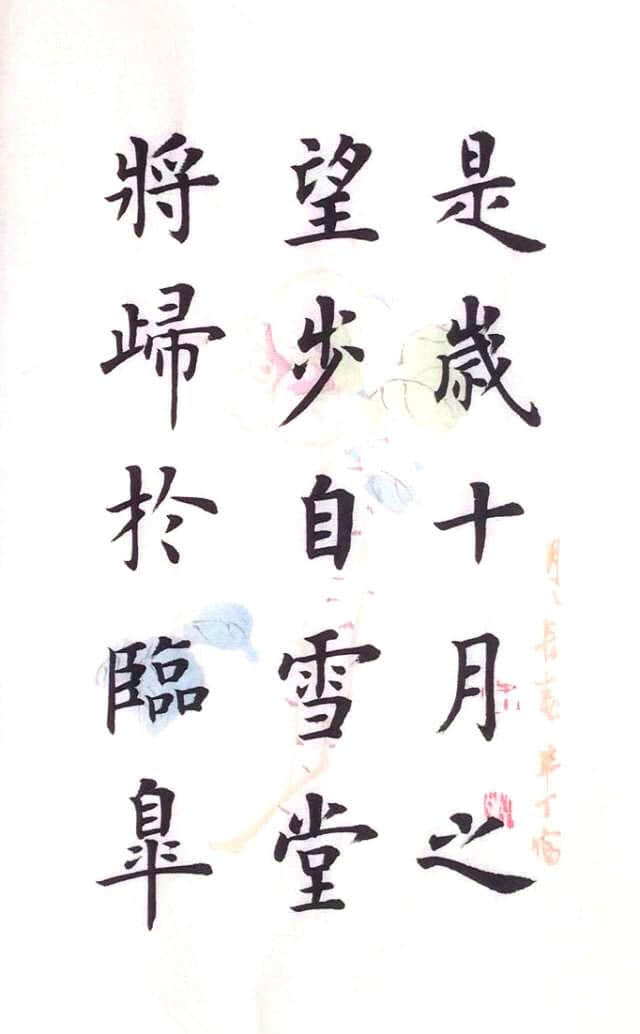 是歲十月之
望步自雪堂
將歸於臨皐